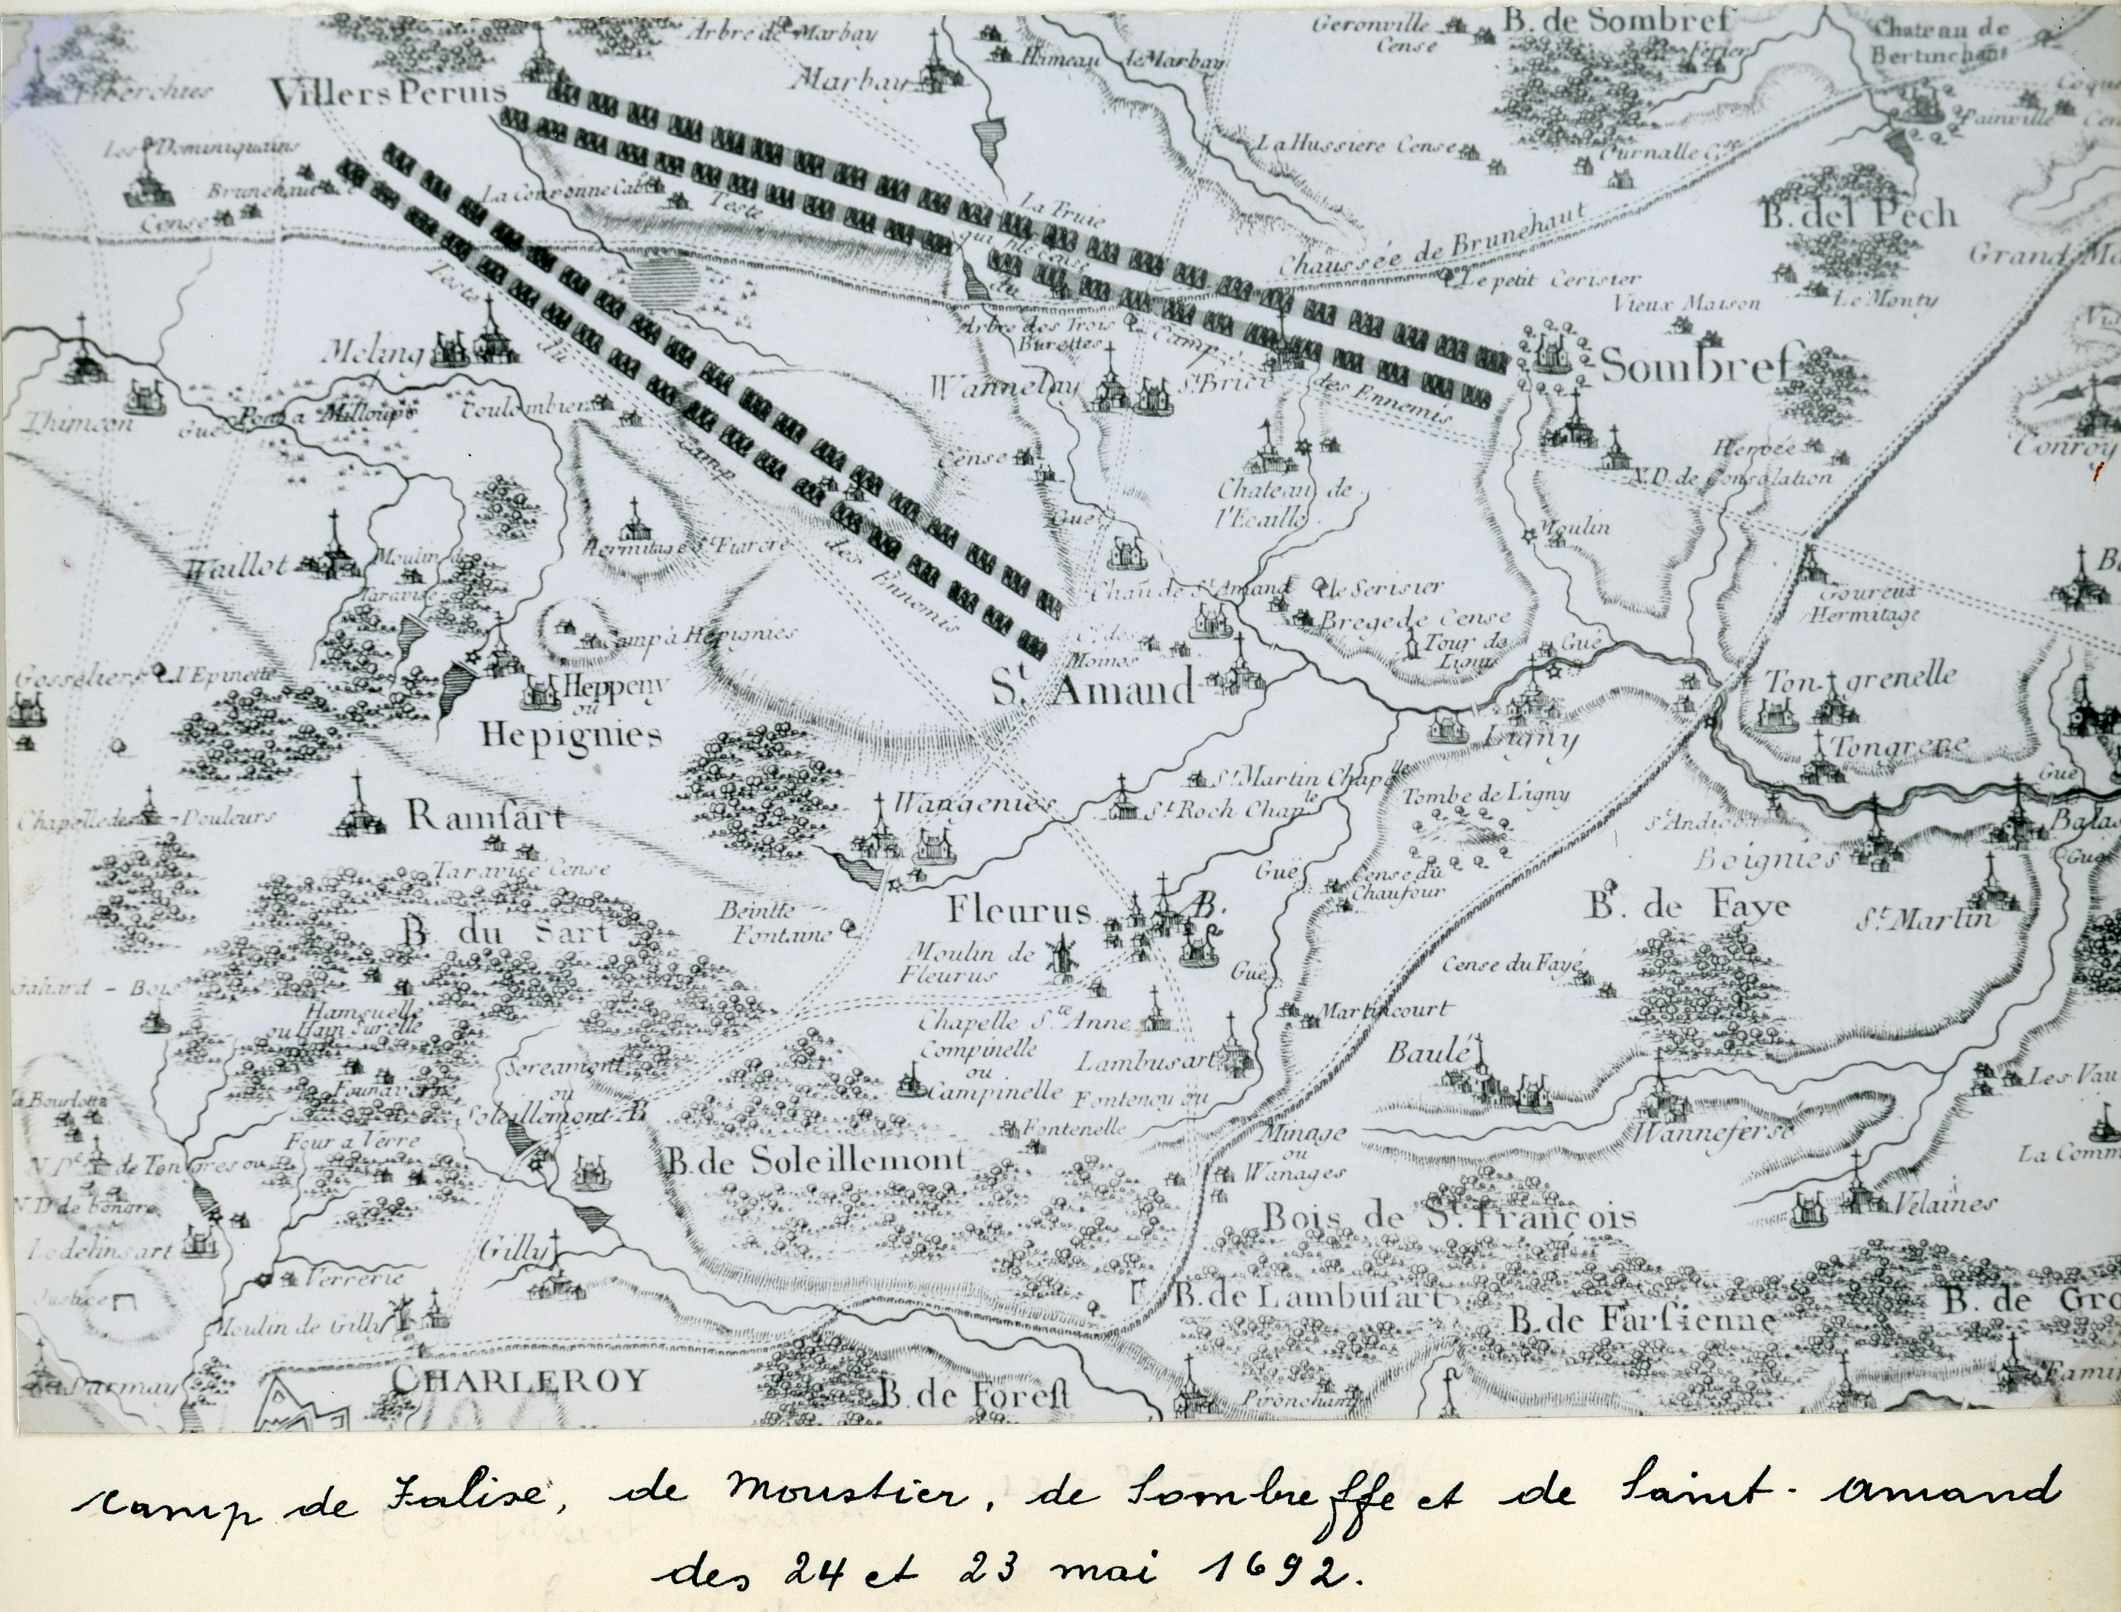 Arbre de Marbay
Geronville
Cense
B. de Sombref
Ferier
Chateau de
Bertinchant
Villers Peruis
Marbay
Hameau de Marbay
Painville
Les Dominiquains
La Hussiere Cense
Ournalle Cse
Brunehaut
Cense
La Couronne Cabt
Teste
La Truie
qui file Cause
du
Chaussée de Brunehaut
B. del Pech
Teste
Le petit Cerisier
Vieux Maison
Le Monty
Meling
du
Arbre des Trois
Burettes
Camp
Sombref
Wannelay
St. Brice
des Ennemis
Thimeon
Gué
Pont a Milloups
Coulombier
Conroy
Cense
camp
Chateau de
l'Ecaille
Hervée
N.D. de Consolation
Gué
Moulin
Waillot
Moulin de
Taravise
Hermitage St. Fiacre
des Ennemis
Chau de St. Amand
le Serisier
Goureua
Hermitage
Bregede Cense
Camp à Hepignies
C. des
Moines
Tour de
Ligni
Gué
Gosseliers
l'Epinette
Heppeny
ou
Hepignies
St. Amand
Tongrenelle
Ligny
Tongrene
St. Martin Chaplle
Gué
Chapelle des Douleurs
Ramsart
Wangenies
St. Roch Chaple
Tombe de Ligny
St. Andieu
Boignies
Gué
Taravise Cense
Gué
Cense du
Chaufour
B. du Sart
Beintte
Fontaine
Fleurus
B.
B. de Faye
St. Martin
Moulin de
Fleurus
Gué
Cense du Fayé
Gahard - Bois
Hamguelle
ou Ham Surelle
Chapelle Ste. Anne
Martincourt
Compinelle
ou
Campinelle
Lambusart
Baulé
Soreamont
ou
Soleillemont AB
Fontenoy ou
Fontenelle
Les Vau
La Bourlotte
Four a Verre
Minage
ou
Wanages
Wannefersé
N.De. de Tongres ou
N.D. de bongre
B. de Soleillemont
La Comm
Velaines
Bois de St. François
Lodelinsart
Gilly
Verrerie
Justice
B. de Lambusart
B. de Farsienne
B. de Gro
Moulin de Gilly
CHARLEROY
Darmay
B. de Forest
Pironchamp
Tamin
camp de Falise, de Moustier, de Sombreffe et de Saint-Amand
des 24 et 23 mai 1692.